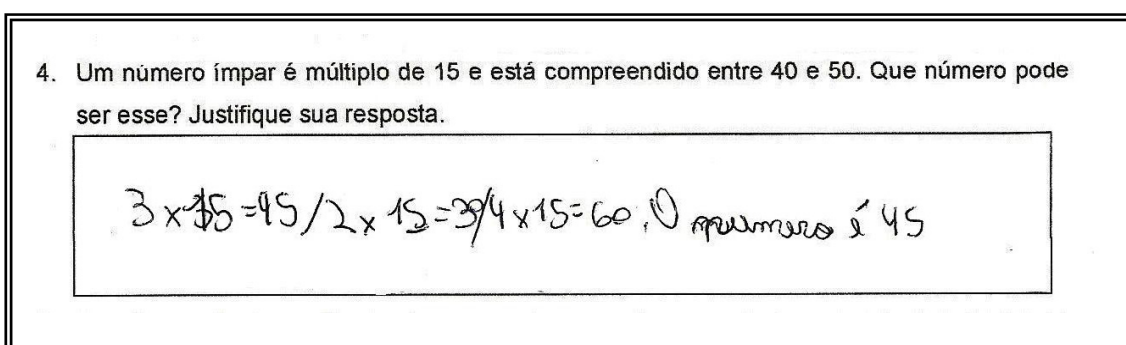 4. Um número ímpar é múltiplo de 15 e está compreendido entre 40 e 50. Que número pode
ser esse? Justifique sua resposta.
3 x 15 = 45 / 2 x 15 = 30 / 4 x 15 = 60. O número é 45